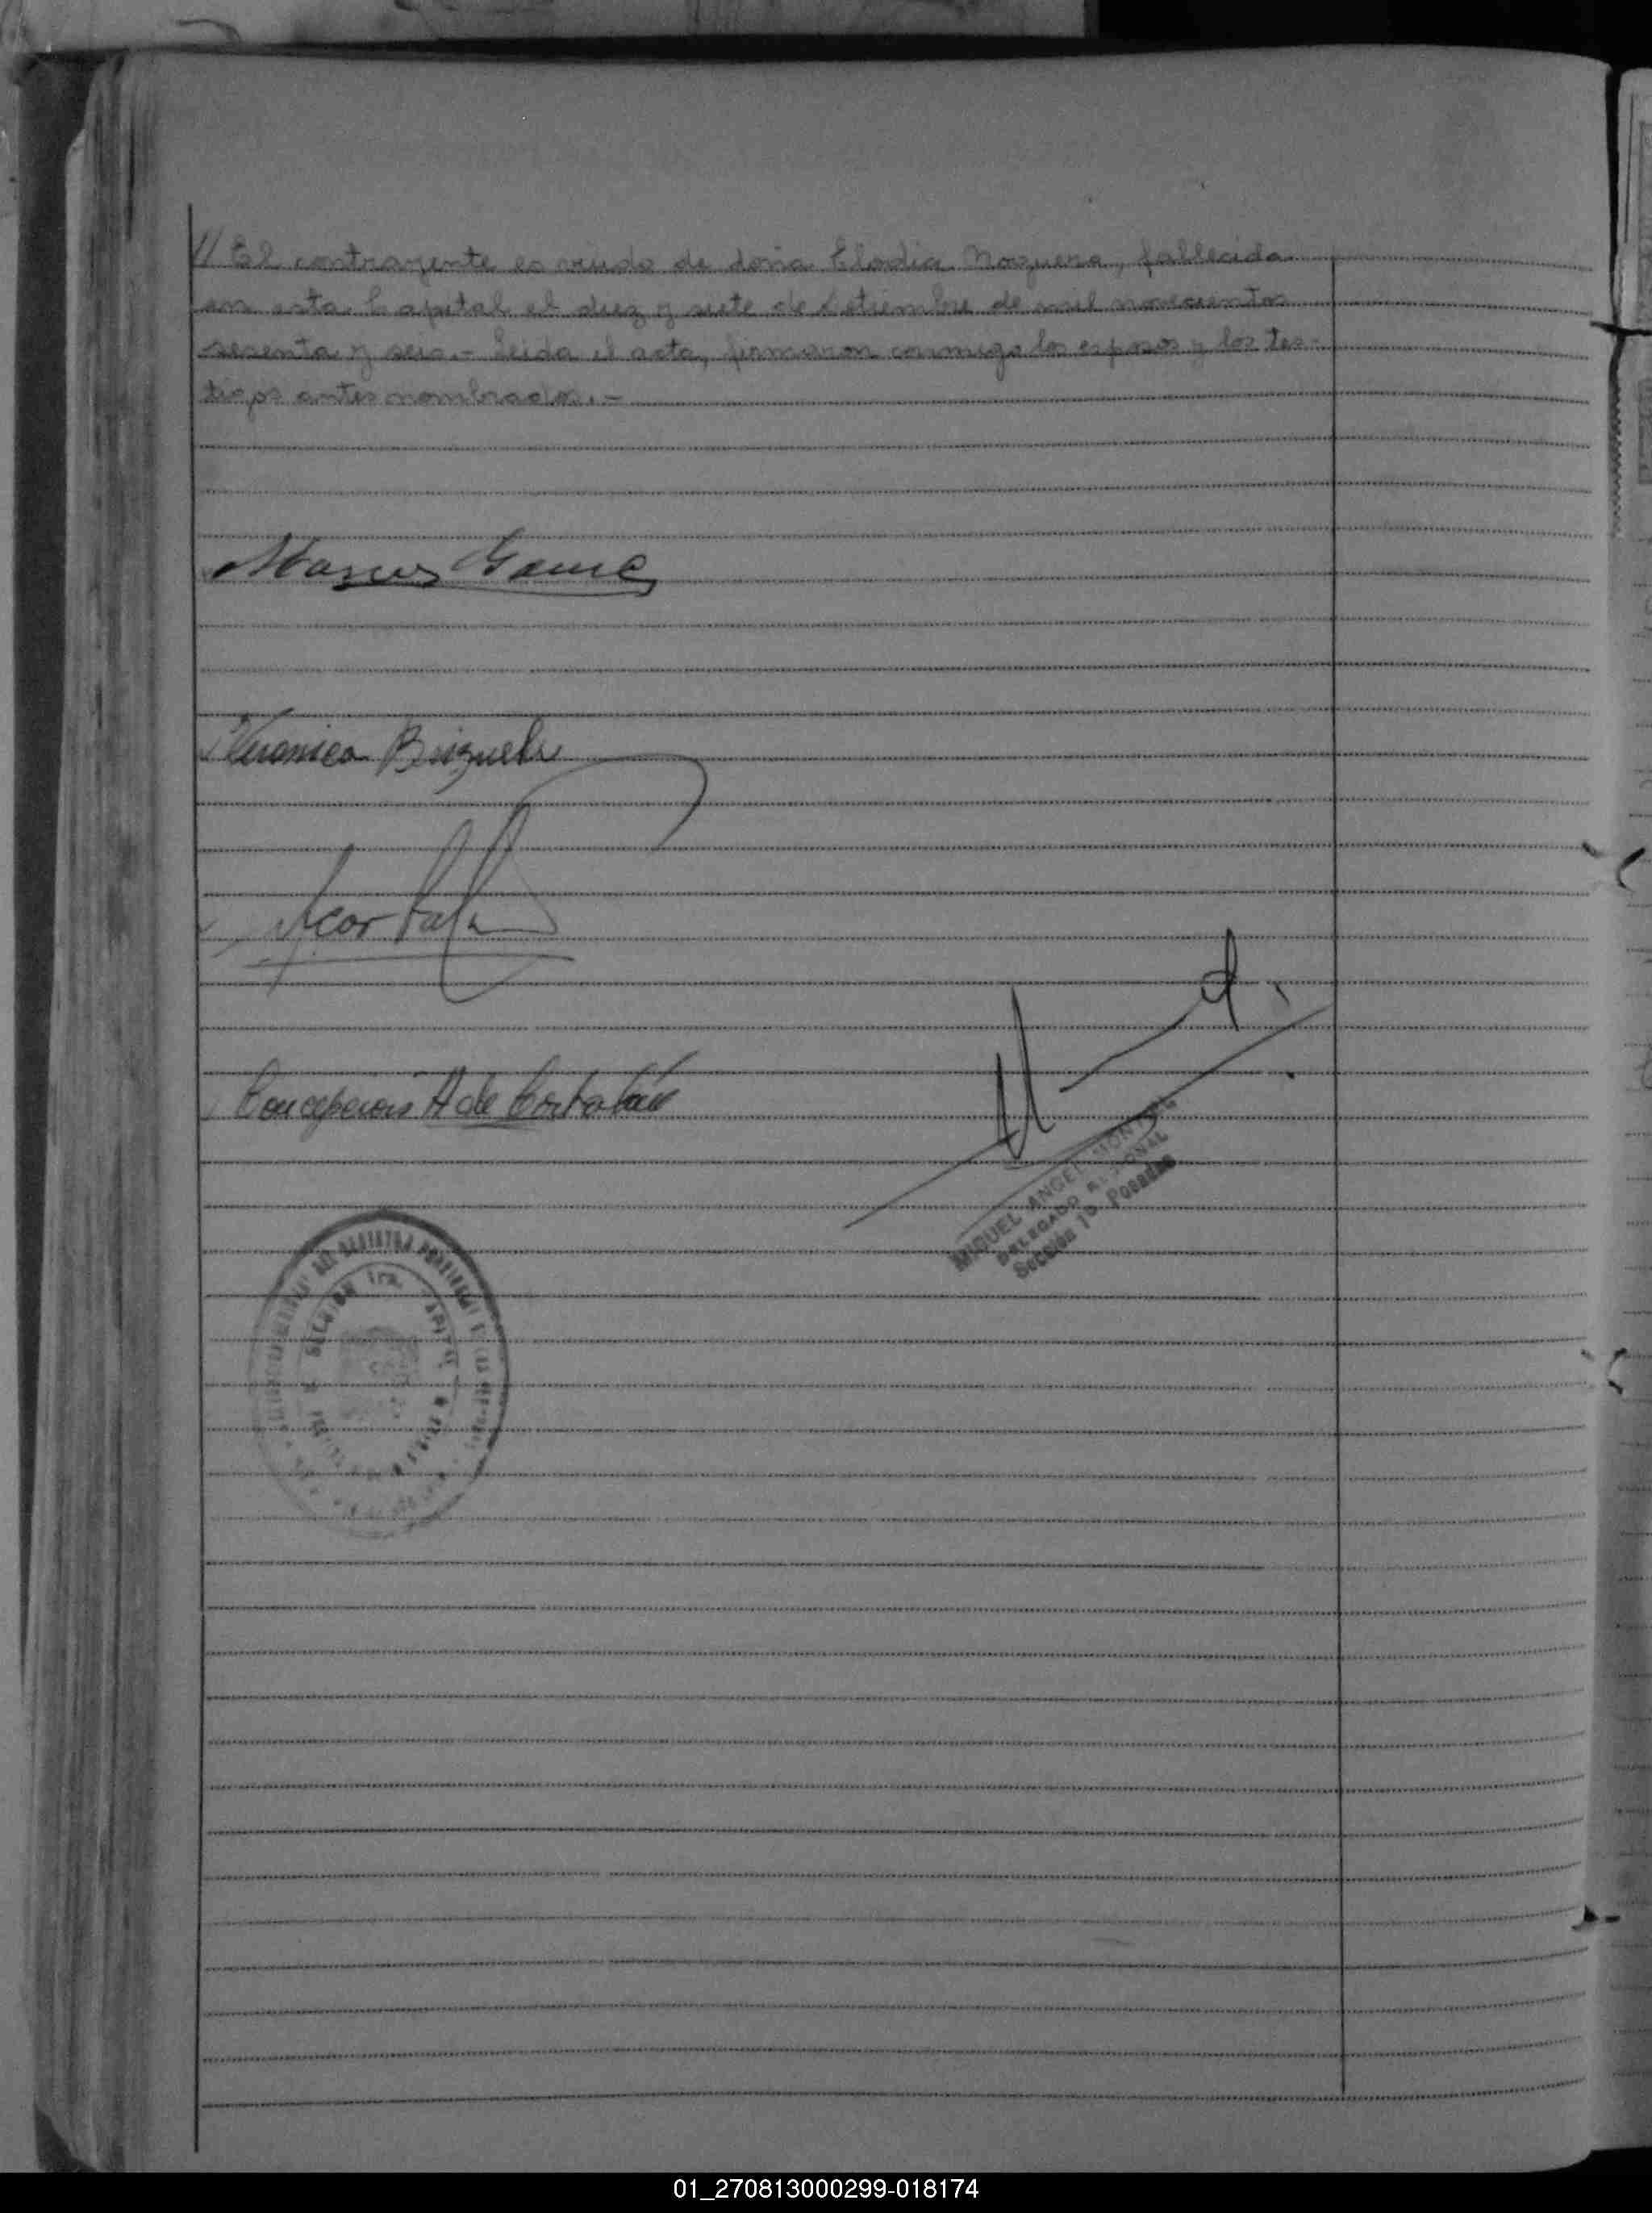 // El contrayente es viudo de doña Elodia Noguera, fallecida
en esta Capital el diez y siete de Setiembre de mil novecientos
sesenta y seis.- Leida el acta, firmaron conmigo los esposos y los tes-
tigos antes nombrados.-
Marcos
Veronica Brizuela
Concepcion A de
MIGUEL ANGEL
DELEGADO
Sección 1a Posadas
SECCION 1ra. CAPITAL
01_270813000299-018174